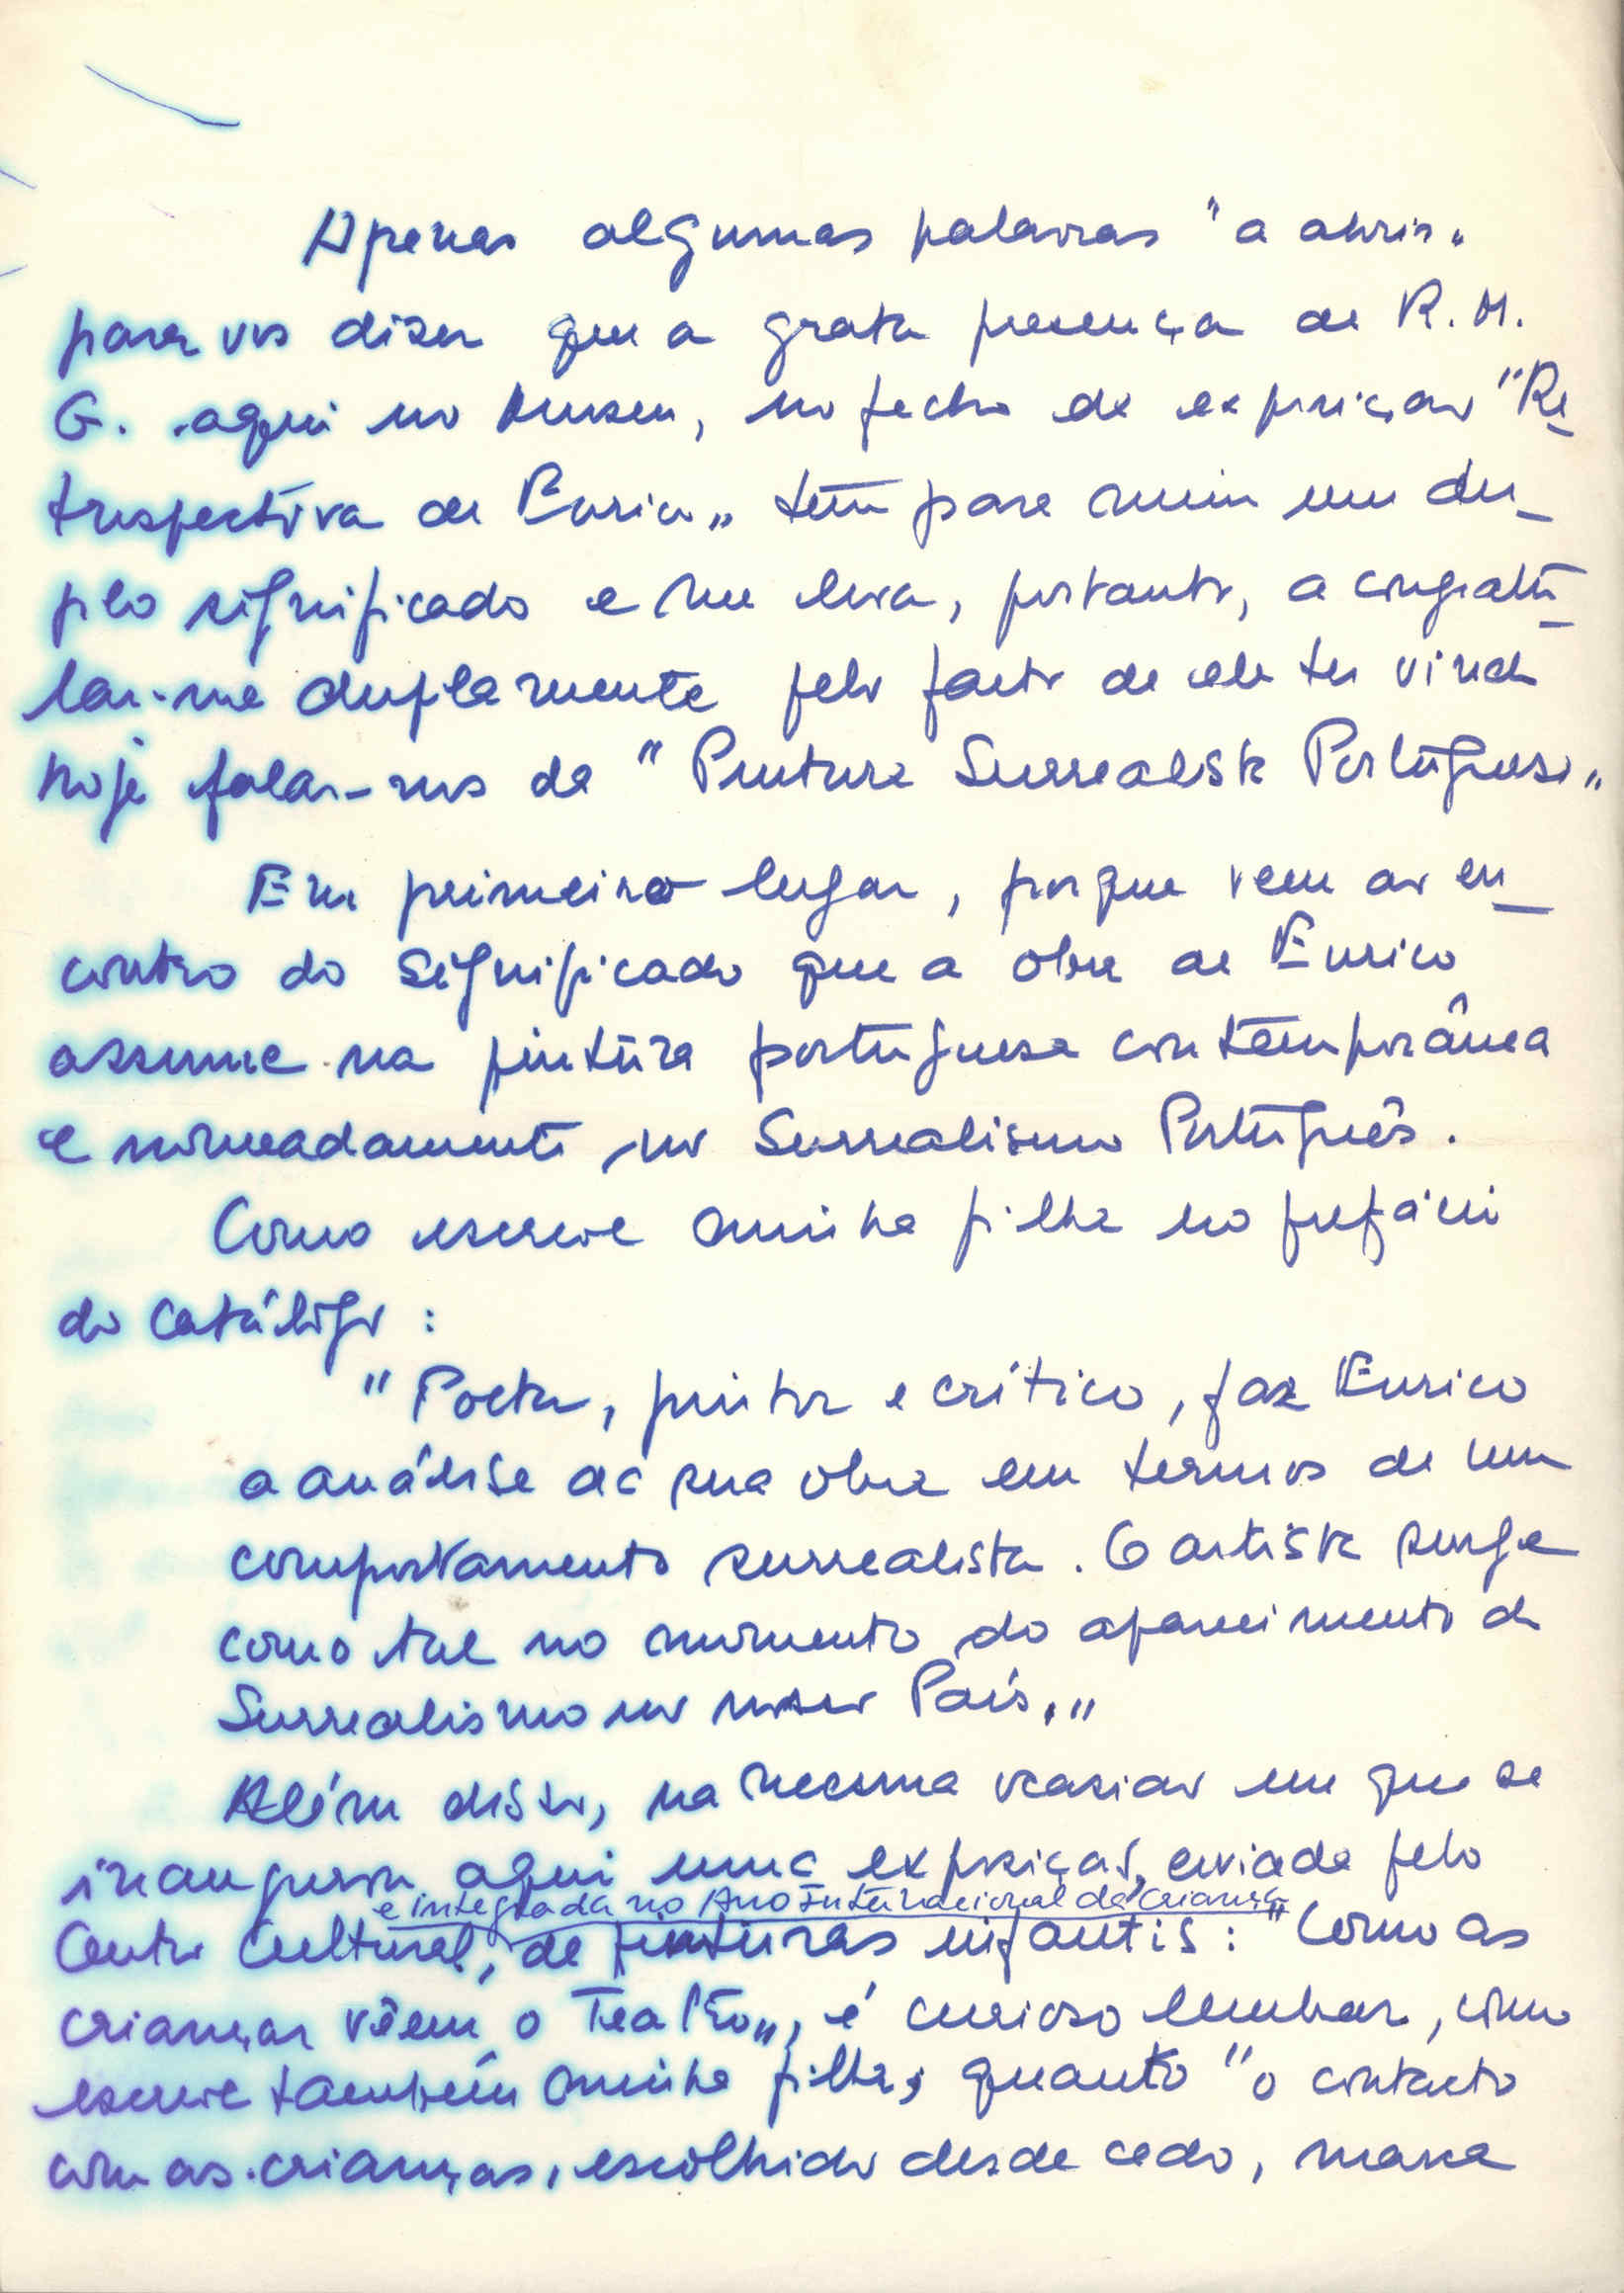 Apenas algumas palavras "a abrir"
para vos dizer que a grata presença de R. M.
G. aqui no Museu, no fecho da exposição "Re
trospectiva de Eurico" tem para mim um du-
plo significado e me leva, portanto, a congratu-
lar-me duplamente pelo facto de ele ter vindo
hoje falar-nos da "Pintura Surrealista Portuguesa"
Em primeiro lugar, porque vem ao en-
contro do significado que a obra de Eurico
assume na pintura portuguesa contemporânea
e nomeadamente no Surrealismo Português.
Como escreve minha filha no prefácio
do catálogo :
"Poeta, pintor e crítico, faz Eurico
a análise da sua obra em termos de um
comportamento surrealista. O artista surge
como tal no momento do aparecimento do
Surrealismo no nosso País."
Além disto, na mesma ocasião em que se
inaugurou aqui uma exposição, enviada pelo
e integrada no Ano Internacional da Criança
Centro Cultural, de pinturas infantis : "Como as
crianças vêem o Teatro", é curioso lembrar, como
escreve também minha filha, quanto "o contacto
com as crianças, escolhido desde cedo, marca